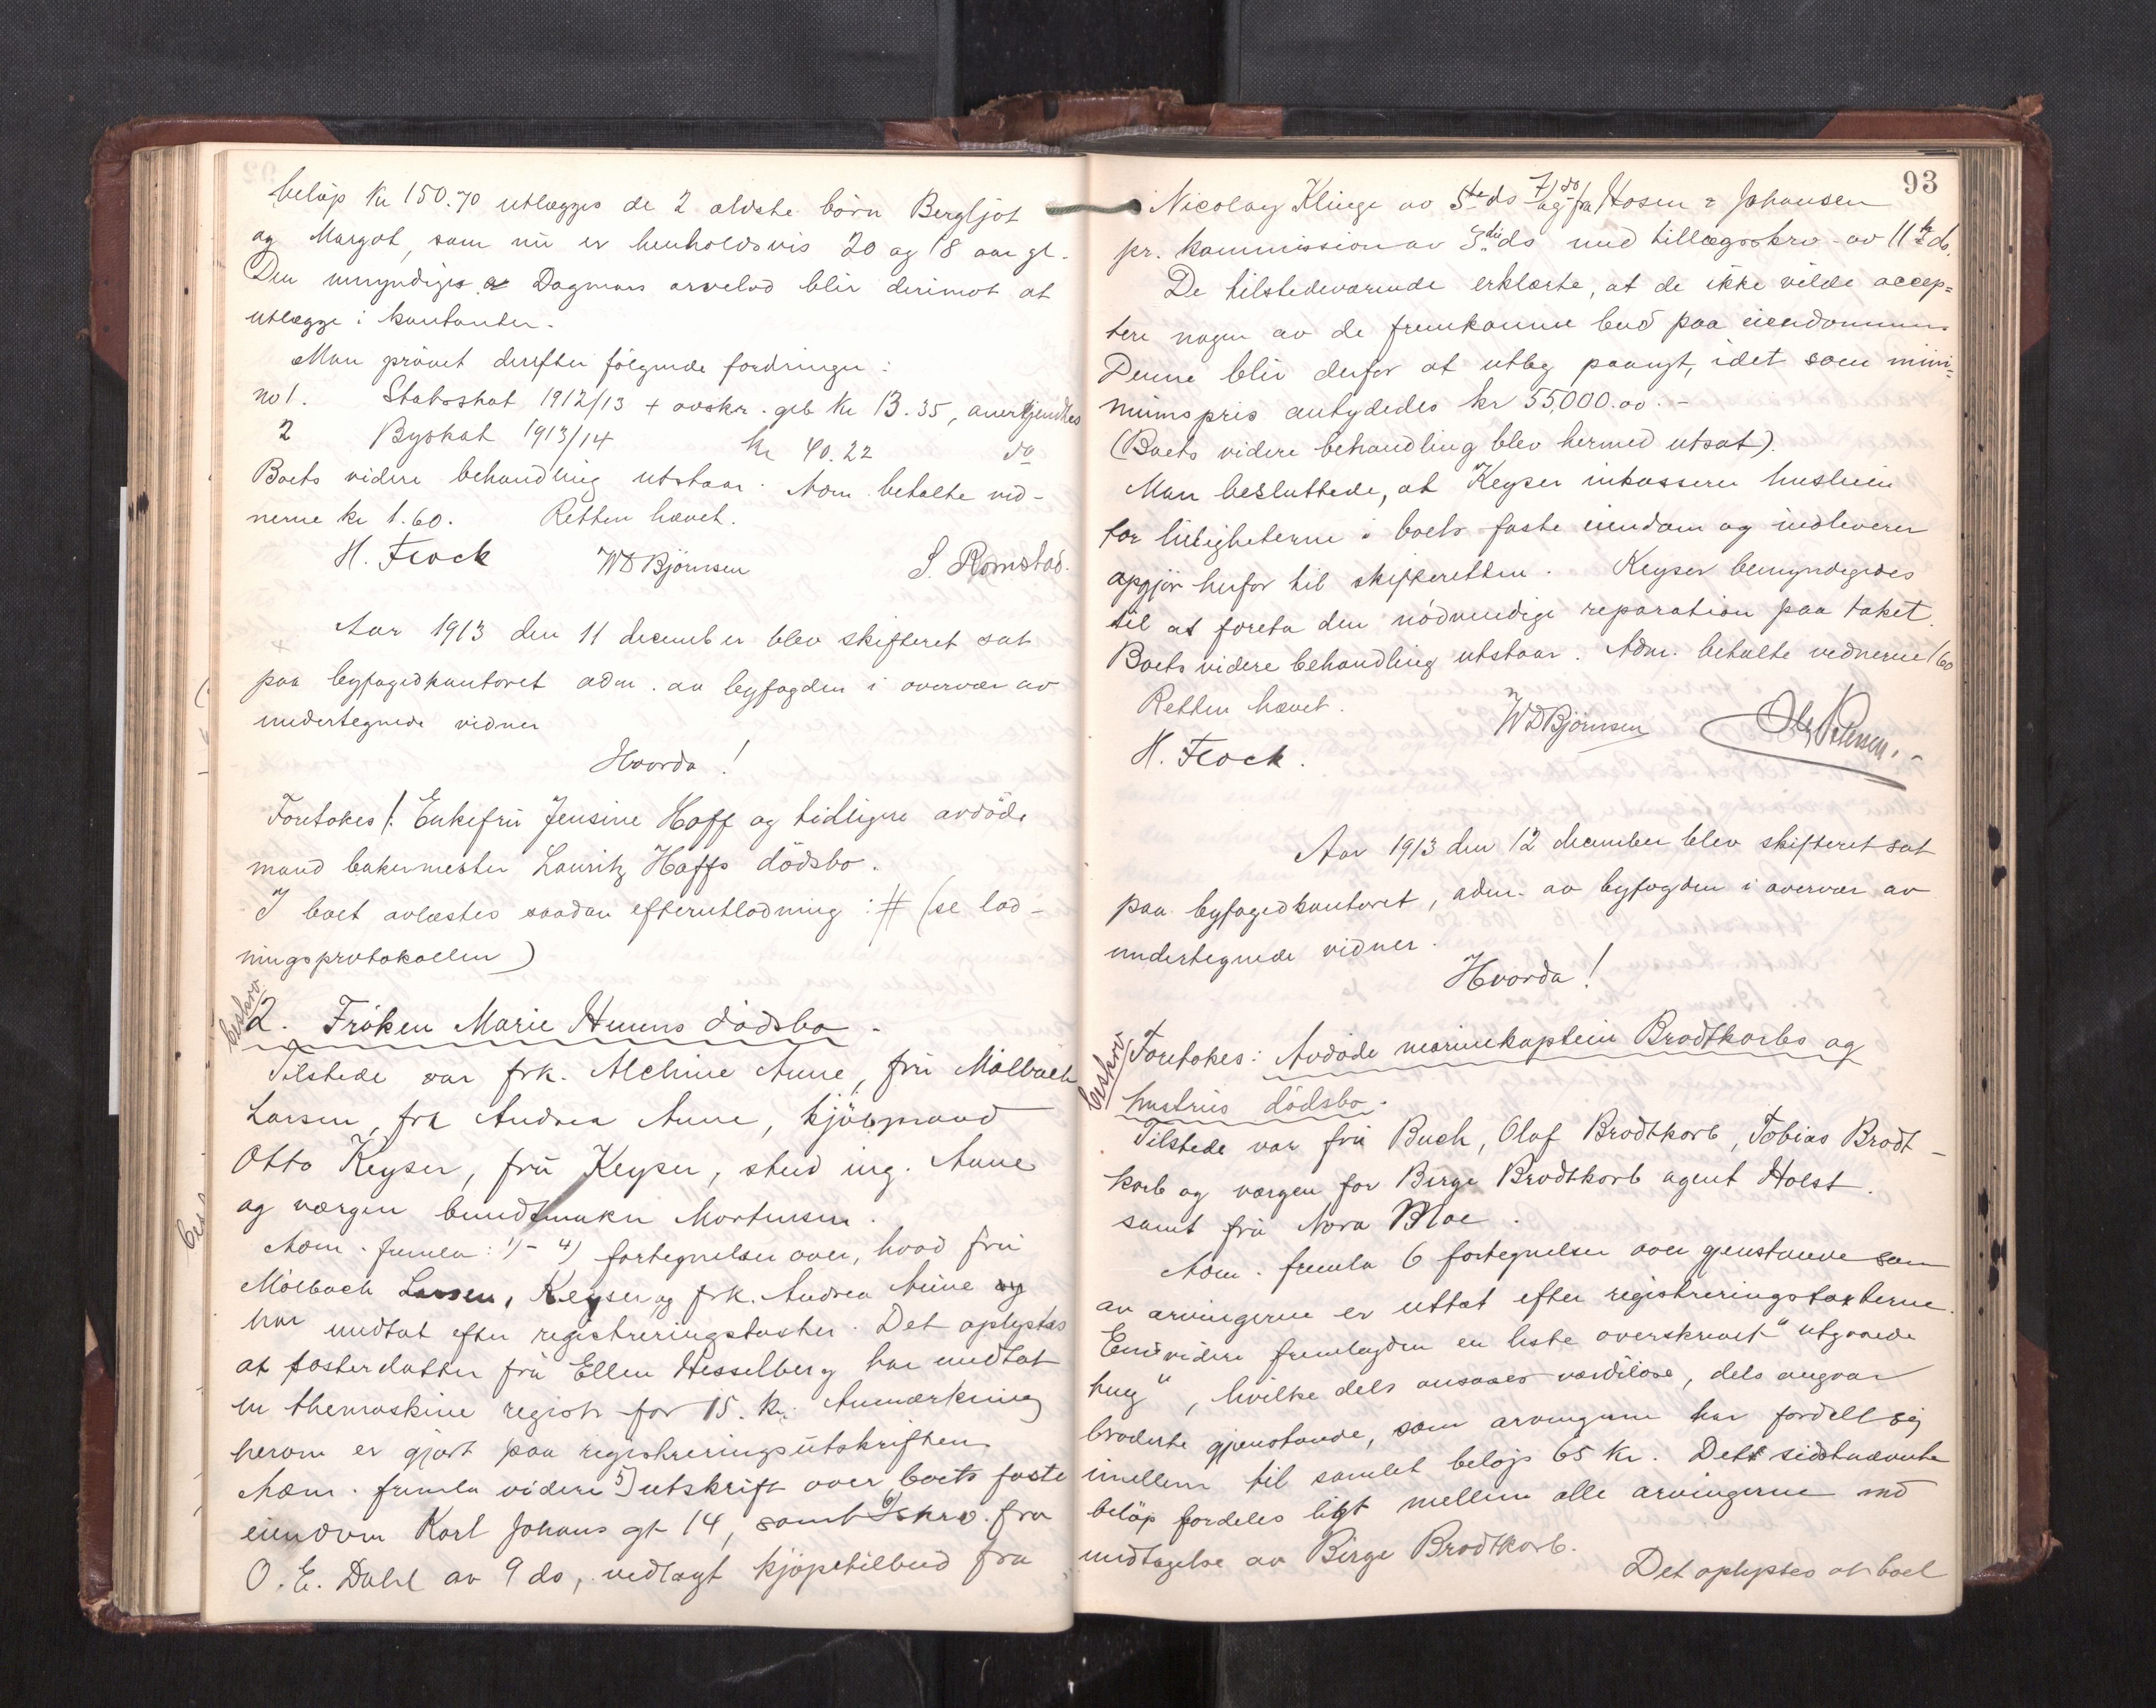 beløp kr 150.70 utlægges de 2 ældste børn Bergljot
og Margot, som nu er henholdsvis 20 og 18 aar gl.
Den umyndiges Dagmars arvelod blir derimot at
utlægge i kontanter.
Man prøvet derefter følgende fordringer:
no 1. Statsskat 1912/13 + avskr. geb kr 13.35, anerkjendtes
2 Byskat 1913/14 kr 40.22 do
Boets videre behandling utstaar. Adm. betalte vid-
nerne kr 1.60. Retten hævet.
H. Flock WD Bjørnsen S. Romstad.
Aar 1913 den 11 december blev skifteret sat
paa byfogedkontoret adm. av byfogden i overvær av
undertegnede vidner
Hvorda!
Foretokes 1. Enkefru Jensine Hoff og tidligere avdøde
mand bakermester Lauritz Hoffs dødsbo.
I boet avlæstes saadan efterutlodning: # (se lod-
ningsprotokollen)
beskrev.
2. Frøken Marie Aunes dødsbo.
Tilstede var frk. Alchine Aune, fru Mølbach
Larsen, frk Andrea Aune, kjøbmand
Otto Keyser, fru Keyser, stud ing. Aune
og værgen bundtmaker Mortensen.
Adm. fremla: 1) - 4) fortegnelser over, hvad fru
Mølbach Larsen, Keyser og frk. Andrea Aune
har undtat efter registreringstakster. Det oplystes
at fosterdatter fru Ellen Hesselberg har undtat
en themaskine registr for 15. kr. Anmærkning
herom er gjort paa registreringsutskriften
Adm. fremla videre 5) utskrift over boets faste
eiendom Karl Johans gt 14, samt 6) skrv. fra
O. E. Dahl av 9 ds, vedlagt kjøpetilbud fra
93
Nicolay Klinge av 5te ds og 7) do fra Hosen & Johansen
pr. kommission av 3die ds med tillægsskrv. av 11te ds.
De tilstedeværende erklærte, at de ikke vilde accep=
tere nogen av de fremkomne bud paa eiendommen.
Denne blir derfor at utby paanyt, idet som mini=
mumspris antydedes kr 55,000.00.-
(Boets videre behandling blev hermed utsat).
Man besluttede, at Keyser inkasserer husleien
for leiligheterne i boets faste eiendom og indleverer
opgjør herfor til skifteretten. Keyser bemyndigedes
til at foreta den nødvendige reparation paa taket.
Boets videre behandling utstaar. Adm. betalte vidnerne 1.60
Retten hævet.
H. Flock. WD Bjørnsen
Aar 1913 den 12 december blev skifteret sat
paa byfogedkontoret, adm. av byfogden i overvær av
undertegnede vidner.
Hvorda!
beskrev.
Foretokes: Avdøde marinekaptein Brodtkorbs og
hustrus dødsbo.
Tilstede var fru Buch, Olaf Brodtkorb, Tobias Brodt-
korb og værgen for Birge Brodtkorb agent Holst.
samt fru Nora Moe.
Adm. fremla 6 fortegnelser over gjenstande som
av arvingerne er uttat efter registreringstaksterne.
Endvidere fremlagdes en liste overskrevet "utgaaede
ting", hvilke dels ansaaes værdiløse, dels angaar
broderte gjenstande, som arvingerne har fordelt sig
imellem til samlet beløp 65 kr. Dette sidstnævnte
beløp fordeles likt mellem alle arvingerne med
undtagelse av Birge Brodtkorb.
Det oplystes at boet